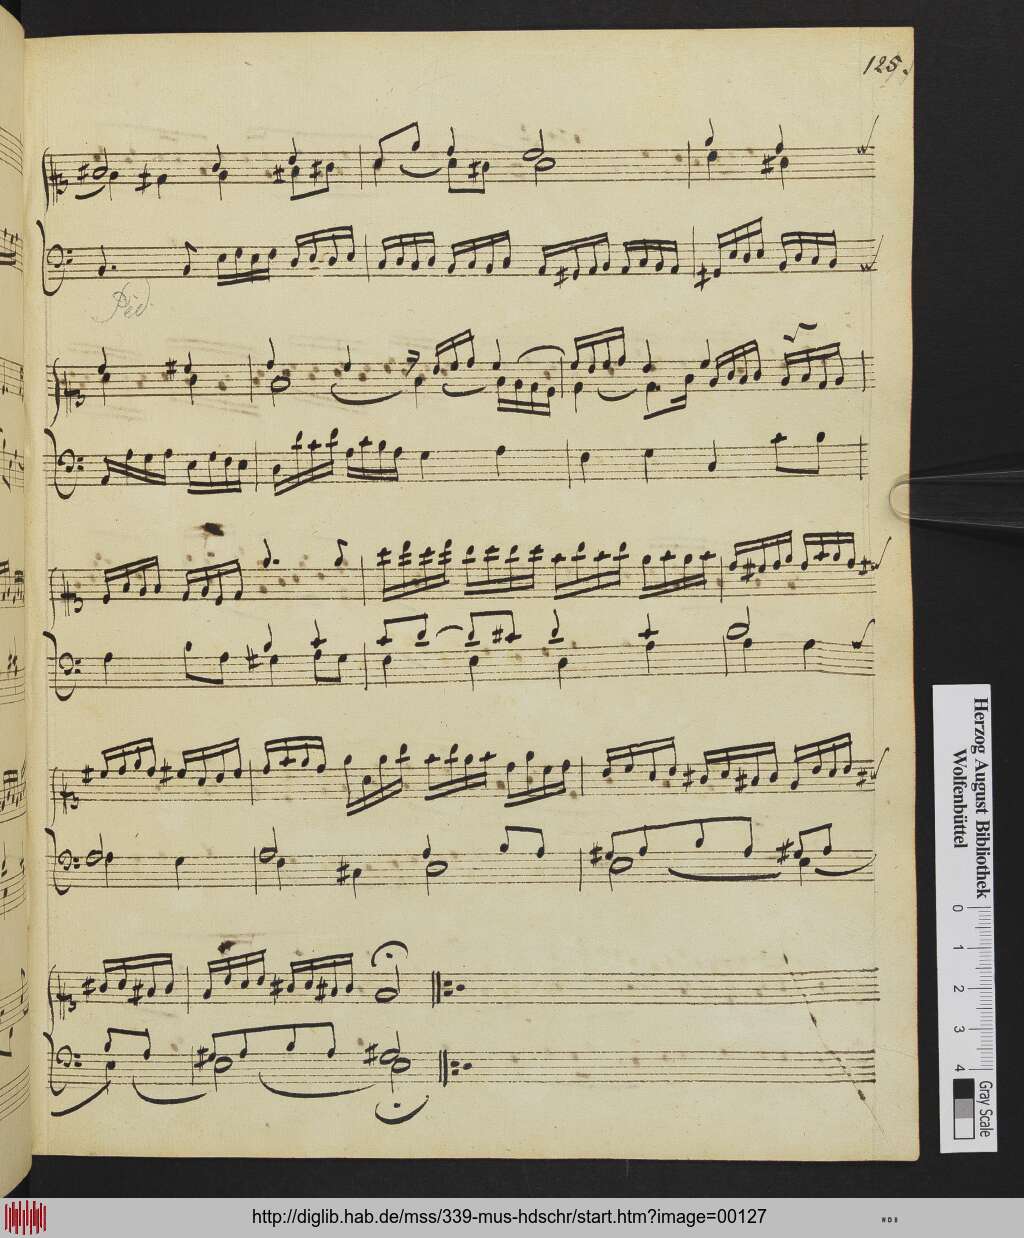 125.
Ped.
Herzog August Bibliothek
Wolfenbüttel
0 1 2 3 4
Gray Scale
http://diglib.hab.de/mss/339-mus-hdschr/start.htm?image=00127